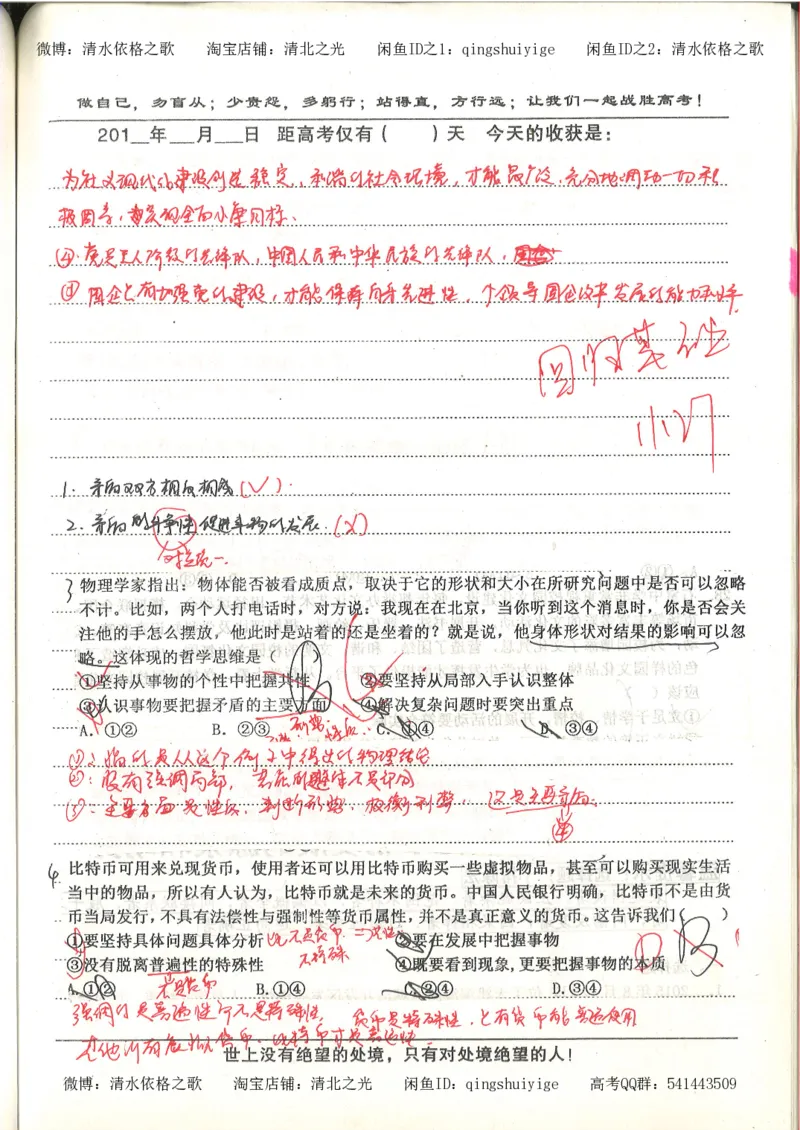 微博：清水依格之歌 淘宝店铺：清北之光 闲鱼ID之1：qingshuiyige 闲鱼ID之2：清水依格之歌
做自己，勿盲从；少责怨，多躬行；站得直，方行远；让我们一起战胜高考！
201__年___月___日 距高考仅有（ ）天 今天的收获是：
为社义现代化建设创造稳定，和谐的社会环境，才能最广泛，充分地调动一切积
极因素，实现全面小康目标、
④.党是工人阶级的先锋队，中国人民和中华民族的先锋队，
④ 国企只有加强党的建设，才能保持自身先进性、
回归基础
小题
1. 矛盾双方相反相成(√)
2. 矛盾的斗争性促进事物的发展.(×)
对立统一.
3 物理学家指出：物体能否被看成质点，取决于它的形状和大小在所研究问题中是否可以忽略
不计。比如，两个人打电话时，对方说：我现在在北京，当你听到这个消息时，你是否会关
注他的手怎么摆放，他此时是站着的还是坐着的？就是说，他身体形状对结果的影响可以忽
略。这体现的哲学思维是（ ）
①坚持从事物的个性中把握共性 ②要坚持从局部入手认识整体
③认识事物要把握矛盾的主要方面 ④解决复杂问题时要突出重点
A. ①② B. ②③ C. ①④ D. ③④
①：指的是从这个例子中得出的物理结论
②：没有强调局部，
③：主要方面是性质，判断形势，权衡利弊，这是主要矛盾.
4 比特币可用来兑现货币，使用者还可以用比特币购买一些虚拟物品，甚至可以购买现实生活
当中的物品，所以有人认为，比特币就是未来的货币。中国人民银行明确，比特币不是由货
币当局发行，不具有法偿性与强制性等货币属性，并不是真正意义的货币。这告诉我们（ ）
①要坚持具体问题具体分析 ②要在发展中把握事物
③没有脱离普遍性的特殊性 ④既要看到现象，更要把握事物的本质
不特殊
A. ①② B. ①④ C. ②④ D. ③④
不是货币
强调的是普遍性而不是特殊性，
世上没有绝望的处境，只有对处境绝望的人！
微博：清水依格之歌 淘宝店铺：清北之光 闲鱼ID：qingshuiyige 高考QQ群：541443509